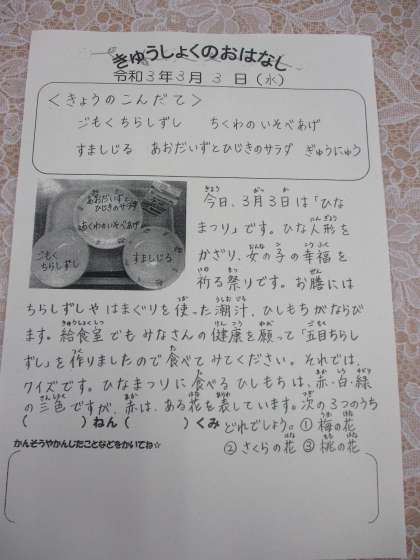 きゅうしょくのおはなし
令和3年3月3日(水)
＜きょうのこんだて＞
ごもくちらしずし ちくわのいそべあげ
すましじる あおだいずとひじきのサラダ ぎゅうにゅう
あおだいずと
ひじきのサラダ
ちくわのいそべあげ
ごもく
ちらしずし
すましじる
今日、3月3日は「ひな
まつり」です。ひな人形を
かざり、女の子の幸福を
祈る祭りです。お膳には
ちらしずしやはまぐりを使った潮汁、ひしもちがならび
ます。給食室でもみなさんの健康を願って「五目ちらし
ずし」を作りましたので食べてみてください。それでは、
クイズです。ひなまつりに食べるひしもちは、赤・白・緑
の三色ですが、赤は、ある花を表しています。次の3つのうち
どれでしょう。①梅の花
②さくらの花 ③桃の花
( )ねん( )くみ
かんそうやかんじたことなどをかいてね☆